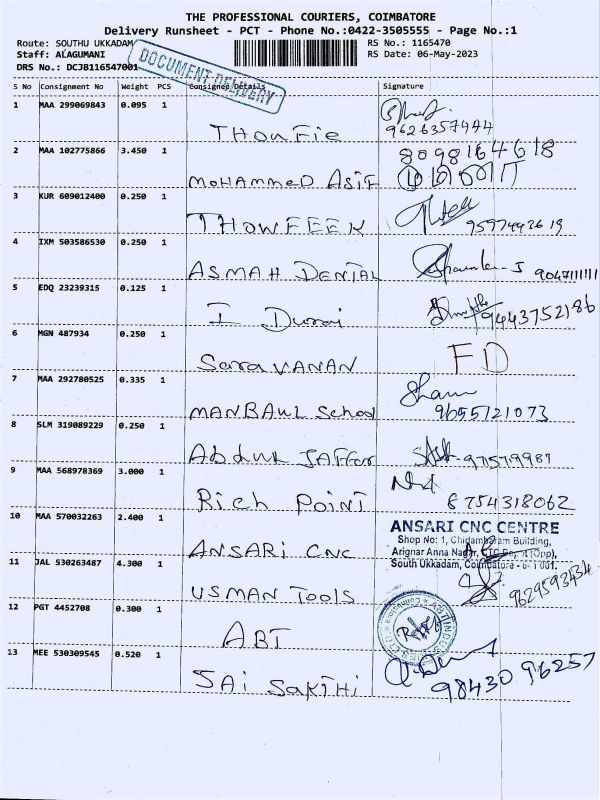 THE PROFESSIONAL COURIERS, COIMBATORE
Delivery Runsheet - PCT - Phone No.:0422-3505555 - Page No.:1
Route: SOUTHU UKKADAM
RS No.: 1165470
Staff: ALAGUMANI
RS Date: 06-May-2023
DRS No.: DCJB116547001
DOCUMENT DELIVERY
S No Consignment No Weight PCS Consignee Details Signature
1 MAA 299069843 0.095 1 THouFie
9626357444
2 MAA 102775866 3.450 1 MoHAMMeD ASiF
8098164618
3 KUR 609012400 0.250 1 THOWFEEK
4 IXM 503586530 0.250 1 ASMAH DENTAL
9047111111
5 EDQ 23239315 0.125 1 I Durai
9443752186
6 MGN 487934 0.250 1 SaraVANAN FD
7 MAA 292780525 0.335 1 MANBAUL School
9655121073
8 SLM 319089229 0.250 1 Abdul JAFFar
9 MAA 568978369 3.000 1 Rich Point
8754318062
10 MAA 570032263 2.400 1 ANSARi CNC
ANSARI CNC CENTRE
Shop No: 1, Chidambaram Building,
Arignar Anna Nagar, (Opp),
South Ukkadam, Coimbatore
11 JAL 530263487 4.300 1 USMAN TooLS
9629593434
12 PGT 4452708 0.300 1 ABT
13 MEE 530309545 0.520 1 SAi SaKTHi
98430 96257